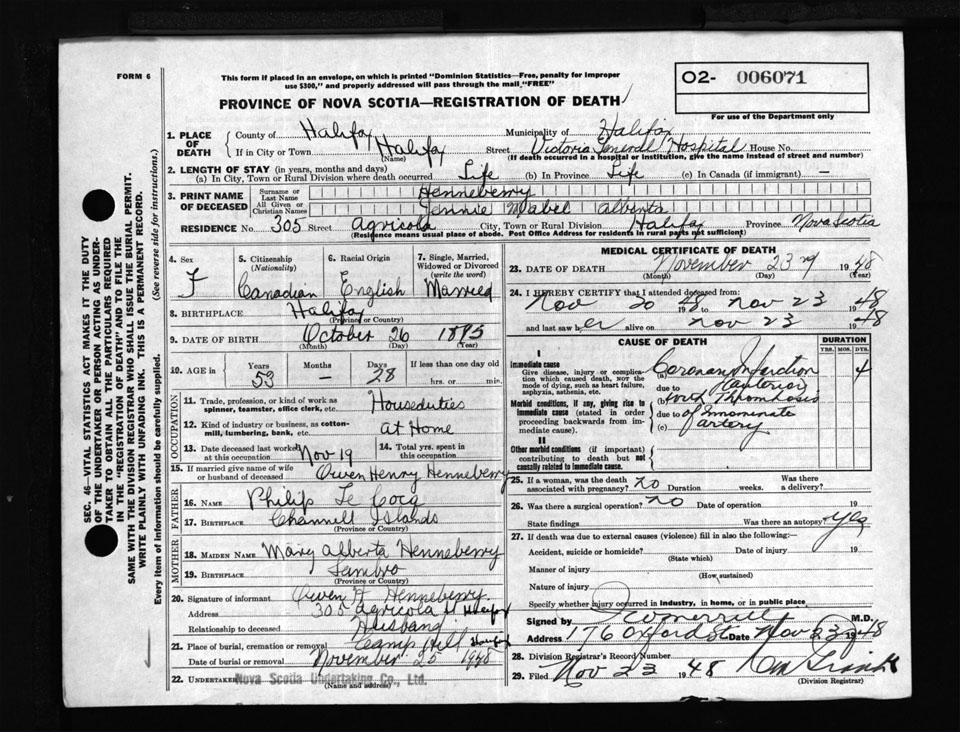 FORM 6
This form if placed in an envelope, on which is printed "Dominion Statistics—Free, penalty for improper
use $300," and properly addressed will pass through the mail "FREE"
O2- 006071
For use of the Department only
PROVINCE OF NOVA SCOTIA—REGISTRATION OF DEATH
1. PLACE OF DEATH { County of Halifax Municipality of Halifax
If in City or Town Halifax (Name) Street Victoria General Hospital House No.
(If death occurred in a hospital or institution, give the name instead of street and number)
2. LENGTH OF STAY (in years, months and days)
(a) In City, Town or Rural Division where death occurred Life (b) In Province Life (c) In Canada (if immigrant) —
3. PRINT NAME OF DECEASED { Surname or Last Name Henneberry
All Given or Christian Names Jennie Mabel Alberta
RESIDENCE No. 305 Street Agricola City, Town or Rural Division Halifax Province Nova Scotia
(Residence means usual place of abode. Post Office Address for residents in rural parts not sufficient)
4. Sex F
5. Citizenship (Nationality) Canadian
6. Racial Origin English
7. Single, Married, Widowed or Divorced (write the word) Married
8. BIRTHPLACE Halifax
(Province or Country)
9. DATE OF BIRTH October 26 1895
(Month) (Day) (Year)
10. AGE in { Years 53 Months — Days 28 If less than one day old
hrs. or min.
OCCUPATION
11. Trade, profession, or kind of work as spinner, teamster, office clerk, etc. Houseduties
12. Kind of industry or business, as cotton-mill, lumbering, bank, etc. At Home
13. Date deceased last worked at this occupation Nov 19
14. Total yrs. spent in this occupation
15. If married give name of wife or husband of deceased Owen Henry Henneberry
FATHER
16. NAME Philip Le Cocq
17. BIRTHPLACE Channell Islands
(Province or Country)
MOTHER
18. MAIDEN NAME Mary Alberta Henneberry
19. BIRTHPLACE Sambro
(Province or Country)
20. Signature of informant Owen H Henneberry
Address 305 Agricola St Halifax
Relationship to deceased Husband
21. Place of burial, cremation or removal Camp Hill Halifax
Date of burial or removal November 25 1948
22. UNDERTAKER Nova Scotia Undertaking Co., Ltd.
(Name and address)
MEDICAL CERTIFICATE OF DEATH
23. DATE OF DEATH November 23 1948
(Month) (Day) (Year)
24. I HEREBY CERTIFY that I attended deceased from:
Nov 20 1948 to Nov 23 1948
and last saw her alive on Nov 23 1948
CAUSE OF DEATH
DURATION
YRS. MOS. DYS.
I
Immediate cause
Give disease, injury or complication which caused death, nor the mode of dying, such as heart failure, asphyxia, asthenia, etc.
(a) Coronary Infarction 4
due to (anterior)
Morbid conditions, if any, giving rise to immediate cause (stated in order proceeding backwards from immediate cause).
(b) Thrombosis
due to of Innominate
(c) artery
II
Other morbid conditions (if important) contributing to death but not causally related to immediate cause.
25. If a woman, was the death associated with pregnancy? no Duration weeks. Was there a delivery?
26. Was there a surgical operation? no Date of operation 19
State findings Was there an autopsy? Yes
27. If death was due to external causes (violence) fill in also the following:—
Accident, suicide or homicide? Date of injury 19
(State which)
Manner of injury
(How sustained)
Nature of injury
Specify whether injury occurred in industry, in home, or in public place
Signed by M.D.
Address 176 Oxford St Date Nov 23 1948
28. Division Registrar's Record Number
29. Filed Nov 23 1948
(Division Registrar)
SEC. 46—VITAL STATISTICS ACT MAKES IT THE DUTY
OF THE UNDERTAKER OR PERSON ACTING AS UNDER-
TAKER TO OBTAIN ALL THE PARTICULARS REQUIRED
IN THE "REGISTRATION OF DEATH" AND TO FILE THE
SAME WITH THE DIVISION REGISTRAR WHO SHALL ISSUE THE BURIAL PERMIT.
WRITE PLAINLY WITH UNFADING INK. THIS IS A PERMANENT RECORD.
Every item of information should be carefully supplied. (See reverse side for instructions.)